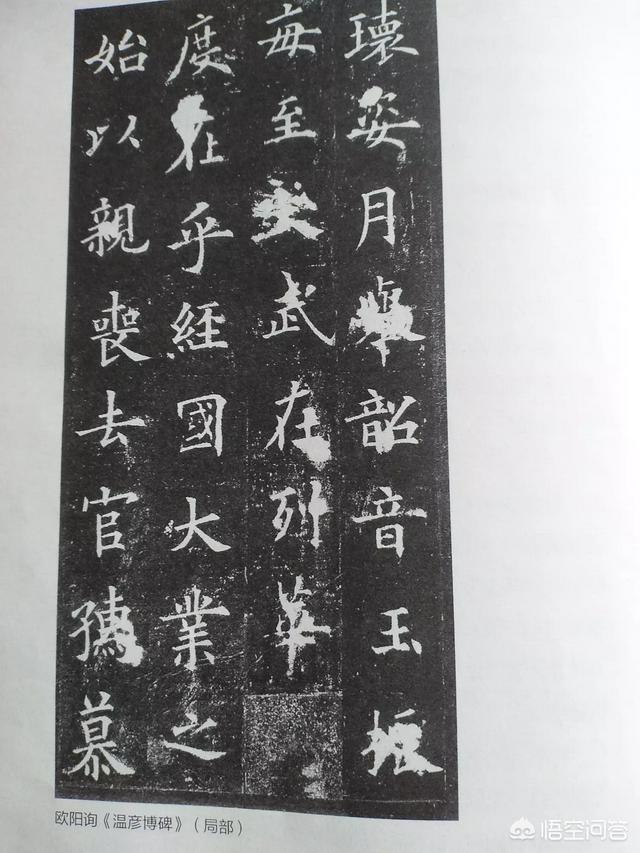 瓌姿月舉韶音玉振
每至武在列華
度在乎經國大業之
始以親喪去官孺慕
欧阳询《温彦博碑》（局部）
悟空问答